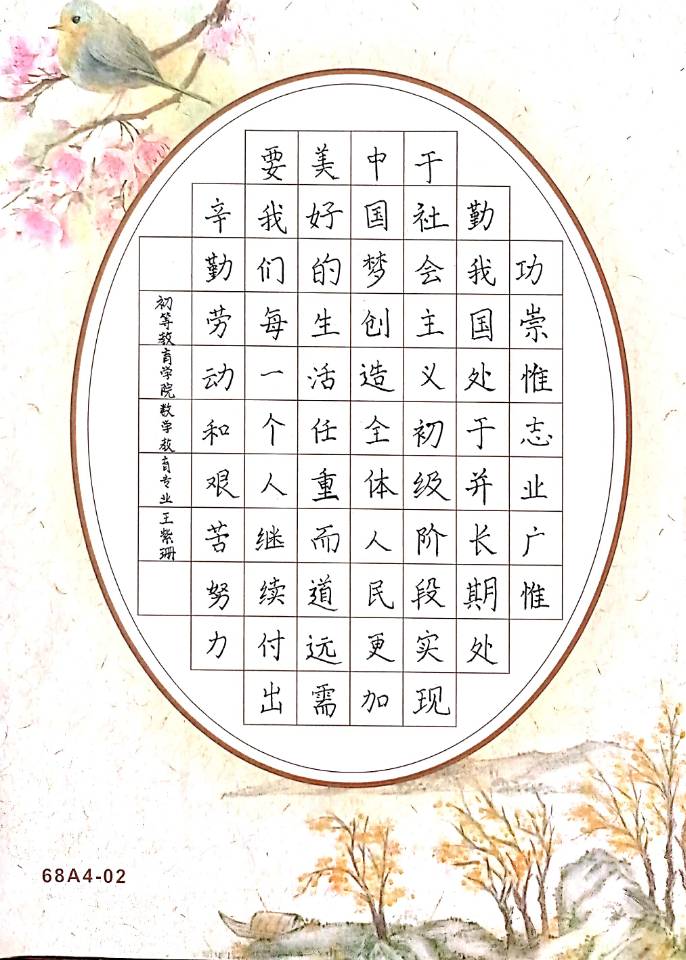 功崇惟志业广惟
勤我国处于并长期处
于社会主义初级阶段实现
中国梦创造全体人民更加
美好的生活任重而道远需
要我们每一个人继续付出
辛勤劳动和艰苦努力
初等教育学院数学教育专业王紫珊
68A4-02